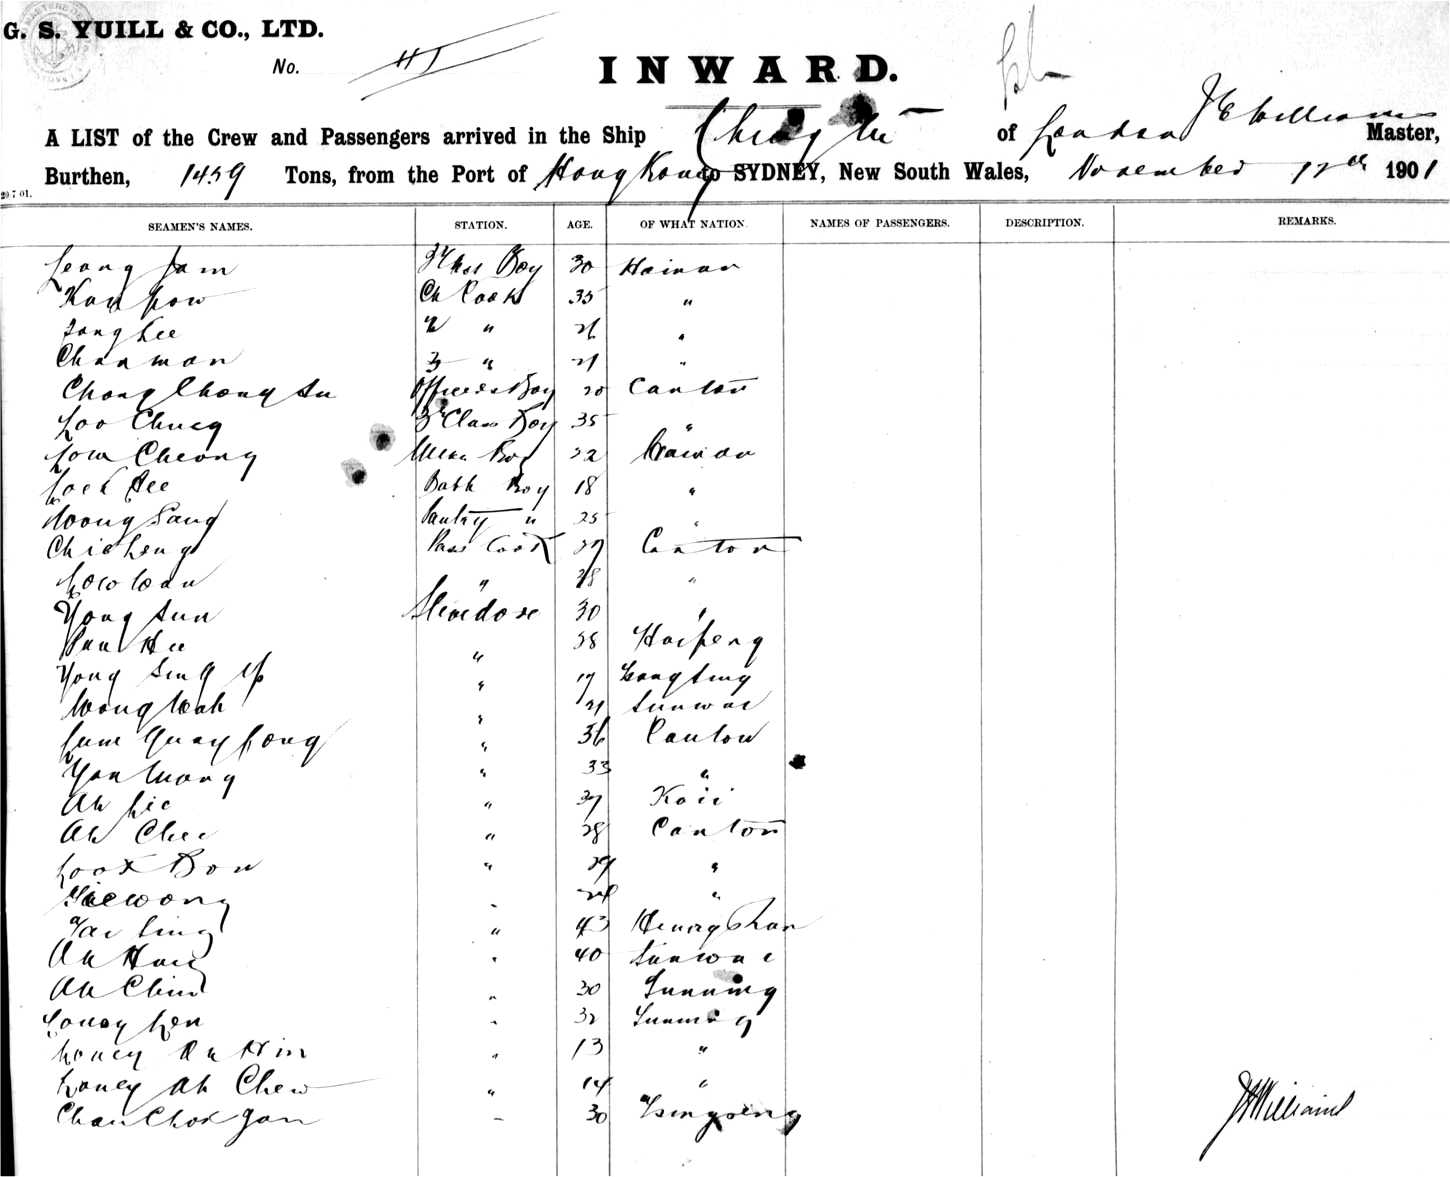 G. S. YUILL & CO., LTD.
No.
INWARD.
A LIST of the Crew and Passengers arrived in the Ship Chingtu of London J E Williams Master,
Burthen, 1459 Tons, from the Port of Hong Kong to SYDNEY, New South Wales, November 12th 1901
29 7 01.
SEAMEN'S NAMES. STATION. AGE. OF WHAT NATION. NAMES OF PASSENGERS. DESCRIPTION. REMARKS.
Leong Sam Boy 30 Hainan
Kan Ch Cook 35 "
Song Lee 2 " 26 "
Chan man 3 " 21 "
Chong Chong Su Officers Boy 20 Canton
Loo Chung 3 Class Boy 35 "
Low Cheong Mess Boy 22 Hainan
Lock See Bath Boy 18 "
Wong Sang Pantry " 25 "
Chie heng Pass Cook 37 Canton
Low Wan " 28 "
Yong Sun Stevedore 30 "
Hee " 38 Hoifeng
Yong Sing Yp " 17
Wong Wah " 21 Sunwai
Lum Quay Fong " 36 Canton
Yan Wong " 33 "
Ah Lie " 37
Ah Chee " 28 Canton
Look Bow " 29 "
" 24 "
Tai Sing " 43 Heungshan
Ah Hung " 40 Sunwai
Ah Chin " 30 Sunning
Loney Len " 32 Sunning
Loney Ah Hin " 13 "
Loney Ah Chew " 14 "
Chan Choi Gan " 30 Tsingseng
J E Williams